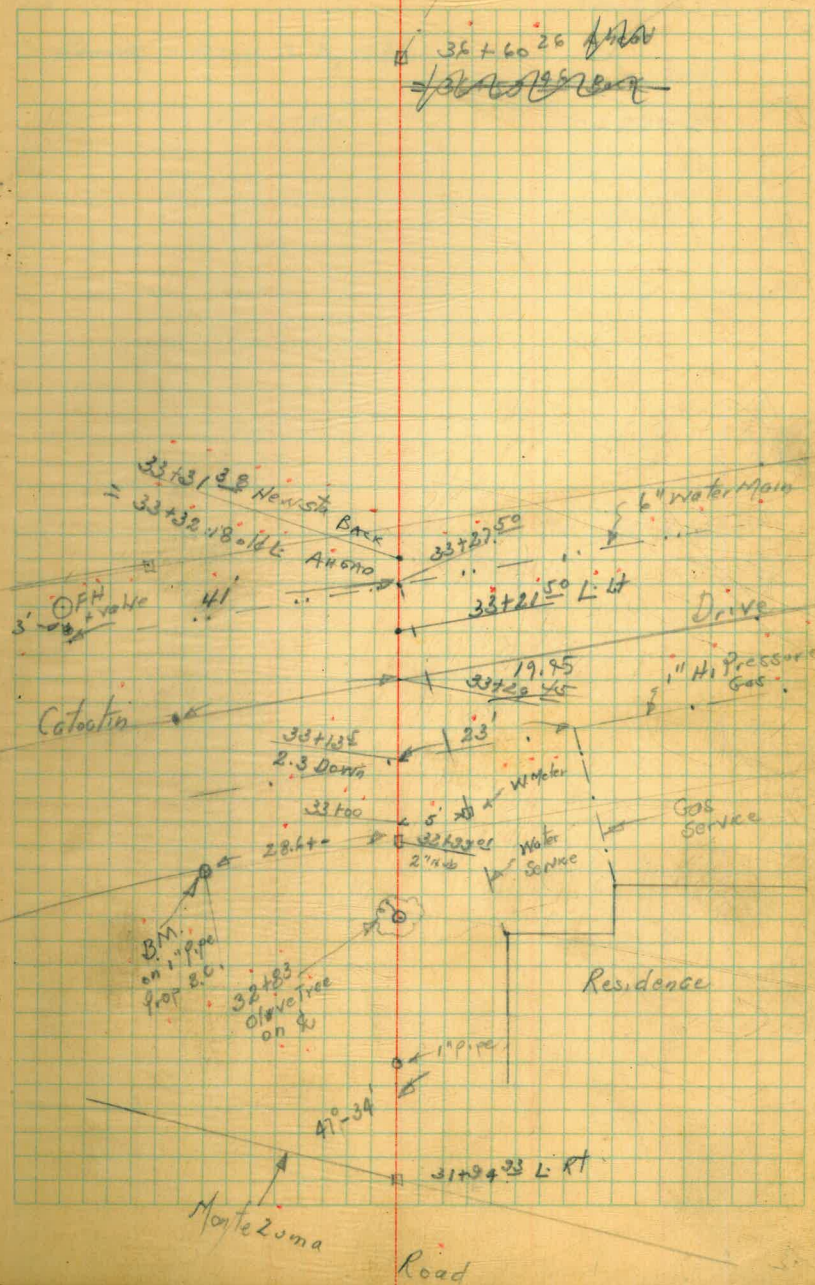 36+60 26
33+31 38 New sta Back
= 33+32.18 old L AHEAD
33+27 50
6" Water Main
FH
+ valve
3'
41'
33+21 50 L Lt
Drive
19.95
33+20 45
1" Hi Pressure
Gas
Catoctin
23'
33+13
2.3 Down
W Meter
33+00
5'
Gas
Service
28.6+-
2" Hub
Water
Service
B.M.
on 1" pipe
Prop B.C.
32+83
Olive Tree
on ℄
Residence
1" Pipe
47°-34'
31+94 93 L Rt
Montezuma
Road